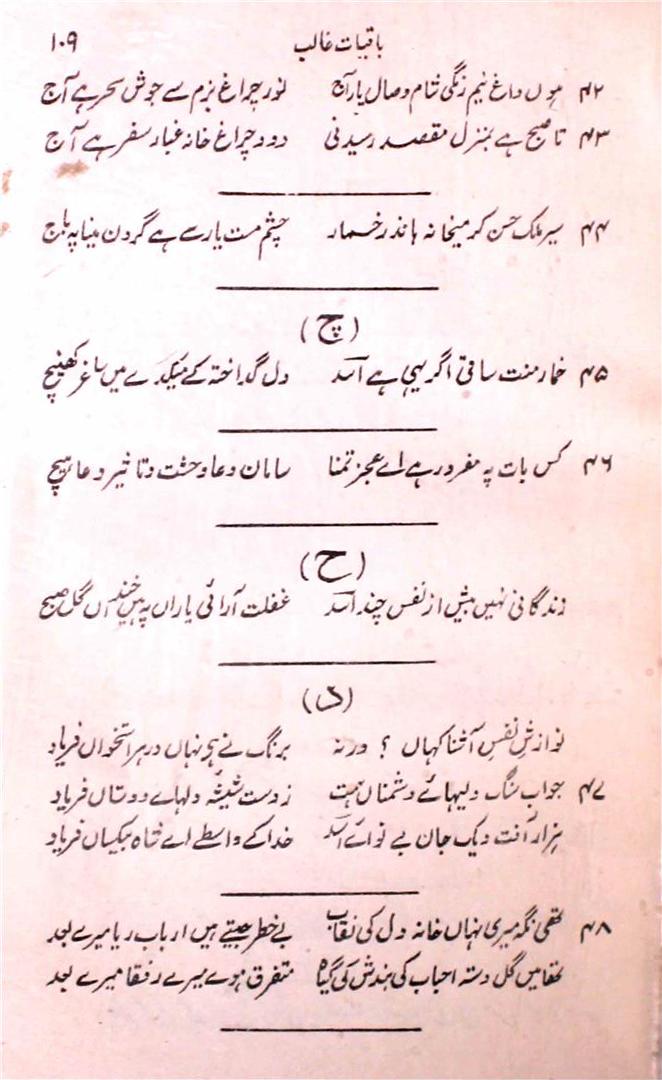 باقیات غالب ۱۰۹
۴۲ ہوں داغ نیم رنگی شام وصال یار آج نور چراغ بزم سے جوش سحر ہے آج
۴۳ تا صبح ہے بمنزل مقصد رسیدنی دود چراغ خانہ غبار سفر ہے آج
۴۴ سیر ملک حسن کر میخانہ ہا نذر خمار چشم مست یار سے ہے گردن مینا پہ باج
(چ)
۴۵ خمار منت ساقی اگر یہی ہے اسد دل گداختہ کے میکدے میں ساغر کھینچ
۴۶ کس بات پہ مغرور ہے اے عجز تمنا سامان دعا وحشت و تاثیر دعا ہیچ
(ح)
زندگانی نہیں بیش از نفس چند اسد غفلت آرائی یاراں پہ ہیں خنداں گل صبح
(د)
نوازشِ نفسِ آشنا کہاں ؟ ورنہ برنگ نے ہی نہاں در ہر استخواں فریاد
۴۷ جواب سنگ دلیہائے دشمناں ہمت ز دست شیشۂ دلہاے دوستاں فریاد
ہزار آفت و یک جان بے نوائے اسد خدا کے واسطے اے شاہ بیکساں فریاد
۴۸ تھی نگہ میری نہاں خانہ دل کی نقاب بے خطر جیتے ہیں ارباب ریا میرے بعد
تھا میں گل دستہ احباب کی بندش کی گیاہ متفرق ہوے میرے رفقا میرے بعد